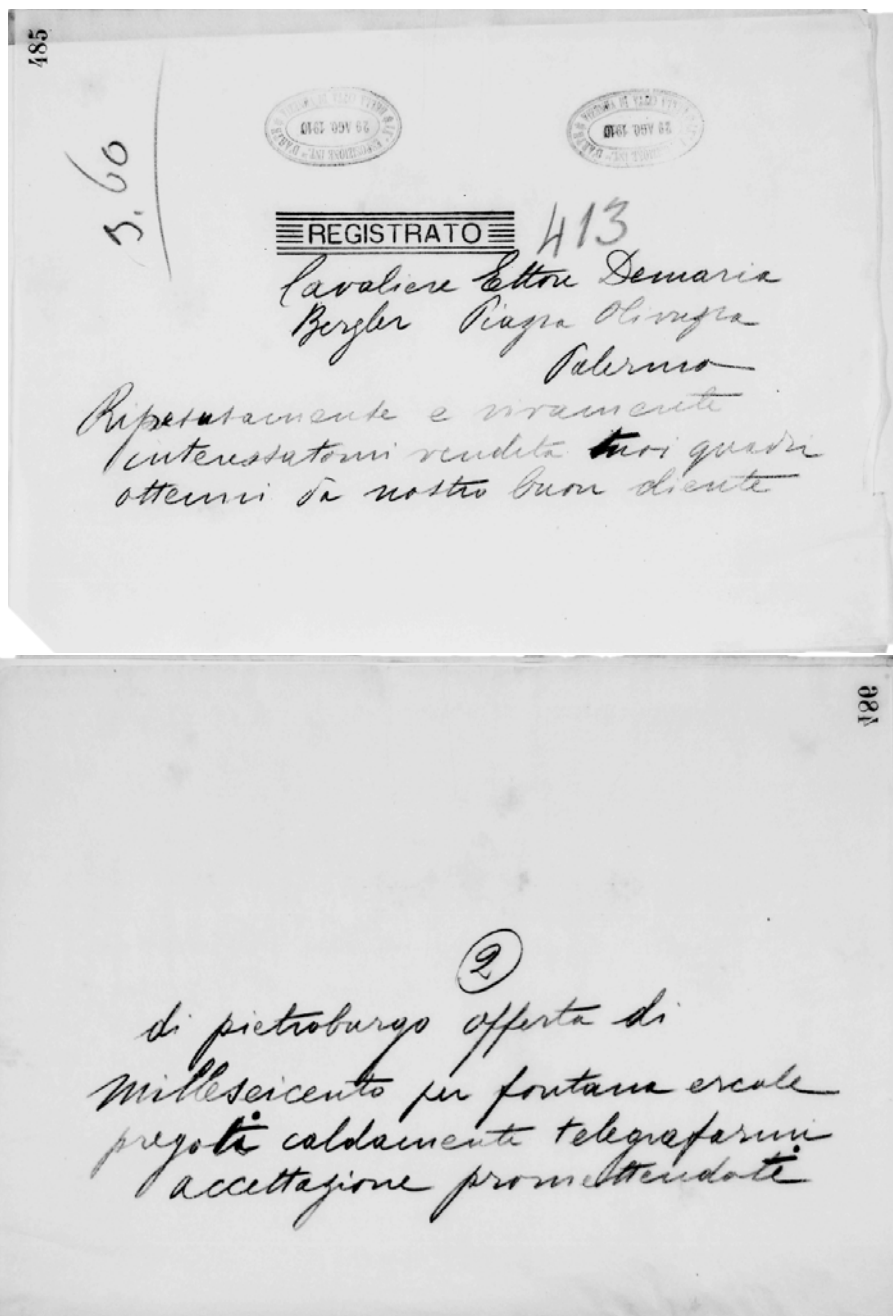 485
3.60
29 AGO. 1910
29 AGO. 1910
REGISTRATO 413
Cavaliere Ettore Demaria
Bergler Piazza Olivuzza
Palermo
Ripetutamente e vivamente
interessatomi vendita tuoi quadri
ottenni da nostro buon cliente
486
2
di pietroburgo offerta di
milleseicento per fontana ercole
pregoti caldamente telegrafarmi
accettazione promettendoti